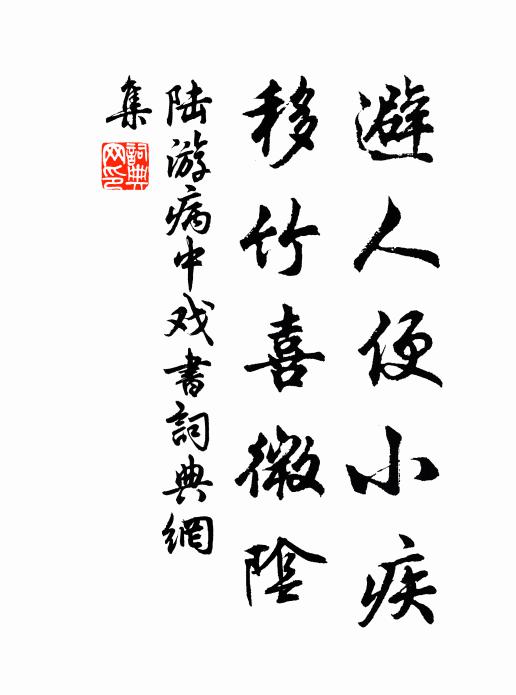 避人便小疾
移竹喜微陰
陸游病中戏書詞典網
集
詞典
网印